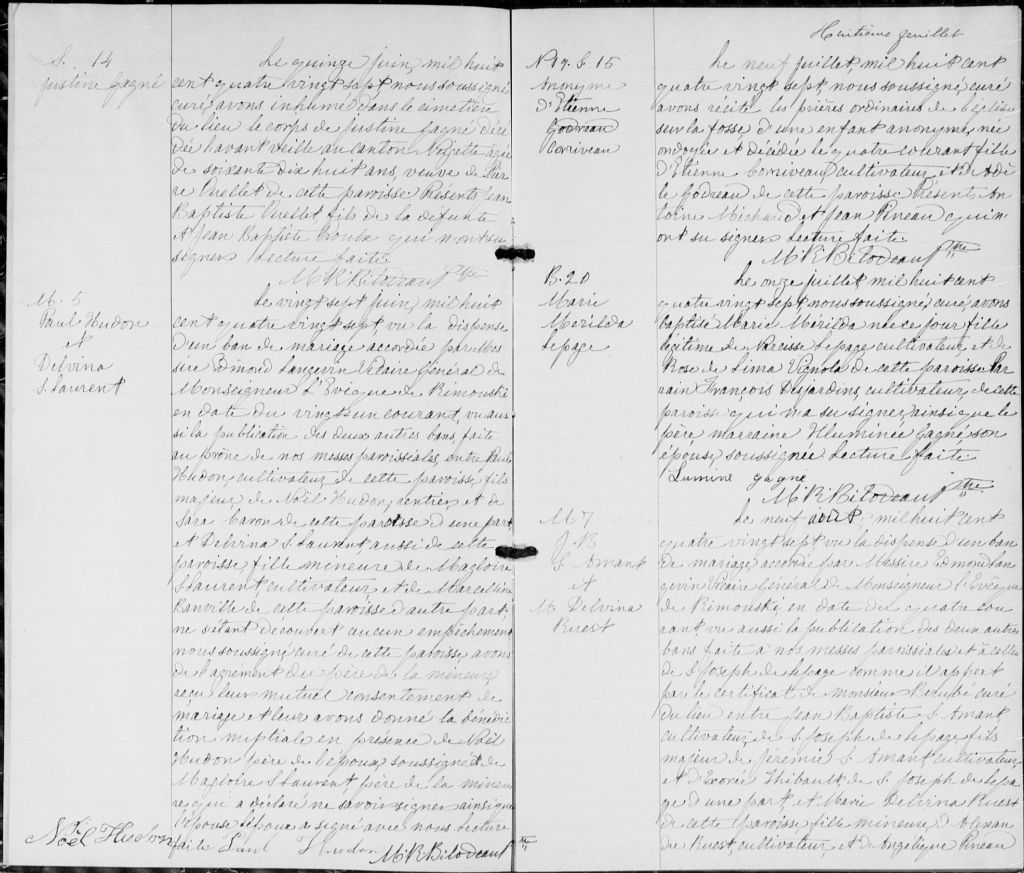 S. 14
Justine Gagné
Le quinze juin, mil huit
cent quatre vingt sept, nous soussigné
curé, avons inhumé dans le cimetière
du lieu le corps de justine Gagné décé
dée l'avant veille au canton Neigette agée
de soixante dix huit ans, veuve de Pier
re Ouellet de cette paroisse Présents Jean
Baptiste Ouellet fils de la defunte
et Jean Baptiste Proulx qui n'ont su
signer Lecture faite.
M R Bilodeau Ptre
M. 5
Paul Hudon
et
Delvina
S. Laurent
Le vingt sept juin, mil huit
cent quatre vingt sept vu la dispense
d'un ban de mariage accordée par Mes
sire Edmond Langevin Vicaire Général de
Monseigneur L'Evêque de Rimouski
en date du vingt un courant, vu aus
si la publication des deux autres bans, faite
au prône de nos messes paroissiales, entre Paul
Hudon, cultivateur de cette paroisse, fils
majeur, de Noël Hudon, rentier, et de
Sara Caron de cette paroisse d'une part,
et Delvina S. Laurent, aussi de cette
paroisse, fille mineure de Magloire
S. Laurent, cultivateur et de Marcelline
Banville de cette paroisse d'autre part,
ne s'étant découvert aucun empêchement
nous soussigné, curé de cette paroisse, avons
de l'agrément du père de la mineure,
reçu leur mutuel consentement de
mariage et leur avons donné la bénédic
tion nuptiale en présence de Noël
Hudon père de l'époux, soussigné et de
Magloire S. Laurent, père de la mineu
re qui a déclaré ne savoir signer ainsi que
l'épouse. L'époux a signé avec nous Lecture
faite Paul Hudon M. R. Bilodeau Ptre
Noël Hudon
Huitième feuillet
N 19. S 15
Anonyme
d'Etienne
Godreau
Corriveau
Le neuf juillet, mil huit cent
quatre vingt sept, nous soussigné, curé
avons récité les prières ordinaires de l'église
sur la fosse d'une enfant anonyme, née
ondoyée et décédée le quatre courant fille
d'Etienne Corriveau, cultivateur et d'Adè
le Godreau de cette paroisse Présents An
toine Michaud et Jean Pineau qui n'
ont su signer Lecture faite.
M R Bilodeau Ptre
B. 20
Marie
Mérilda
Lepage
Le onze juillet, mil huit cent
quatre vingt sept, nous soussigné, curé, avons
baptisé Marie Mérilda née ce jour fille
légitime de Narcisse Lepage cultivateur, et de
Rose de Lima Vignola de cette paroisse Par
rain François Desjardins, cultivateur, de cette
paroisse qui n'a su signer, ainsi que le
père, marraine Illuminée Gagné, son
épouse, soussignée Lecture faite.
Lumine gagne
M R Bilodeau Ptre
M 7
J. B.
S. Amant
et
M. Delvina
Ruest
Le neuf août, mil huit cent
quatre vingt sept, vu la dispense d'un ban
de mariage, accordée par Messire Edmond Lan
gevin Vicaire Général de Monseigneur L'Evêque
de Rimouski, en date du quatre cou
rant, vu aussi la publication des deux autres
bans faite à nos messes paroissiales et à celles
de S. Joseph de Lepage comme il appert
par le certificat de monsieur Bérubé curé
du lieu entre Jean Baptiste S. Amant,
cultivateur, de S. Joseph de Lepage, fils
majeur de Jérémie S. Amant, cultivateur,
et d'Exorée Thibault, de S. Joseph de Lepa
ge d'une part, et Marie Delvina Ruest
de cette paroisse, fille mineure d'Alexan
dre Ruest, cultivateur, et d'Angélique Pineau